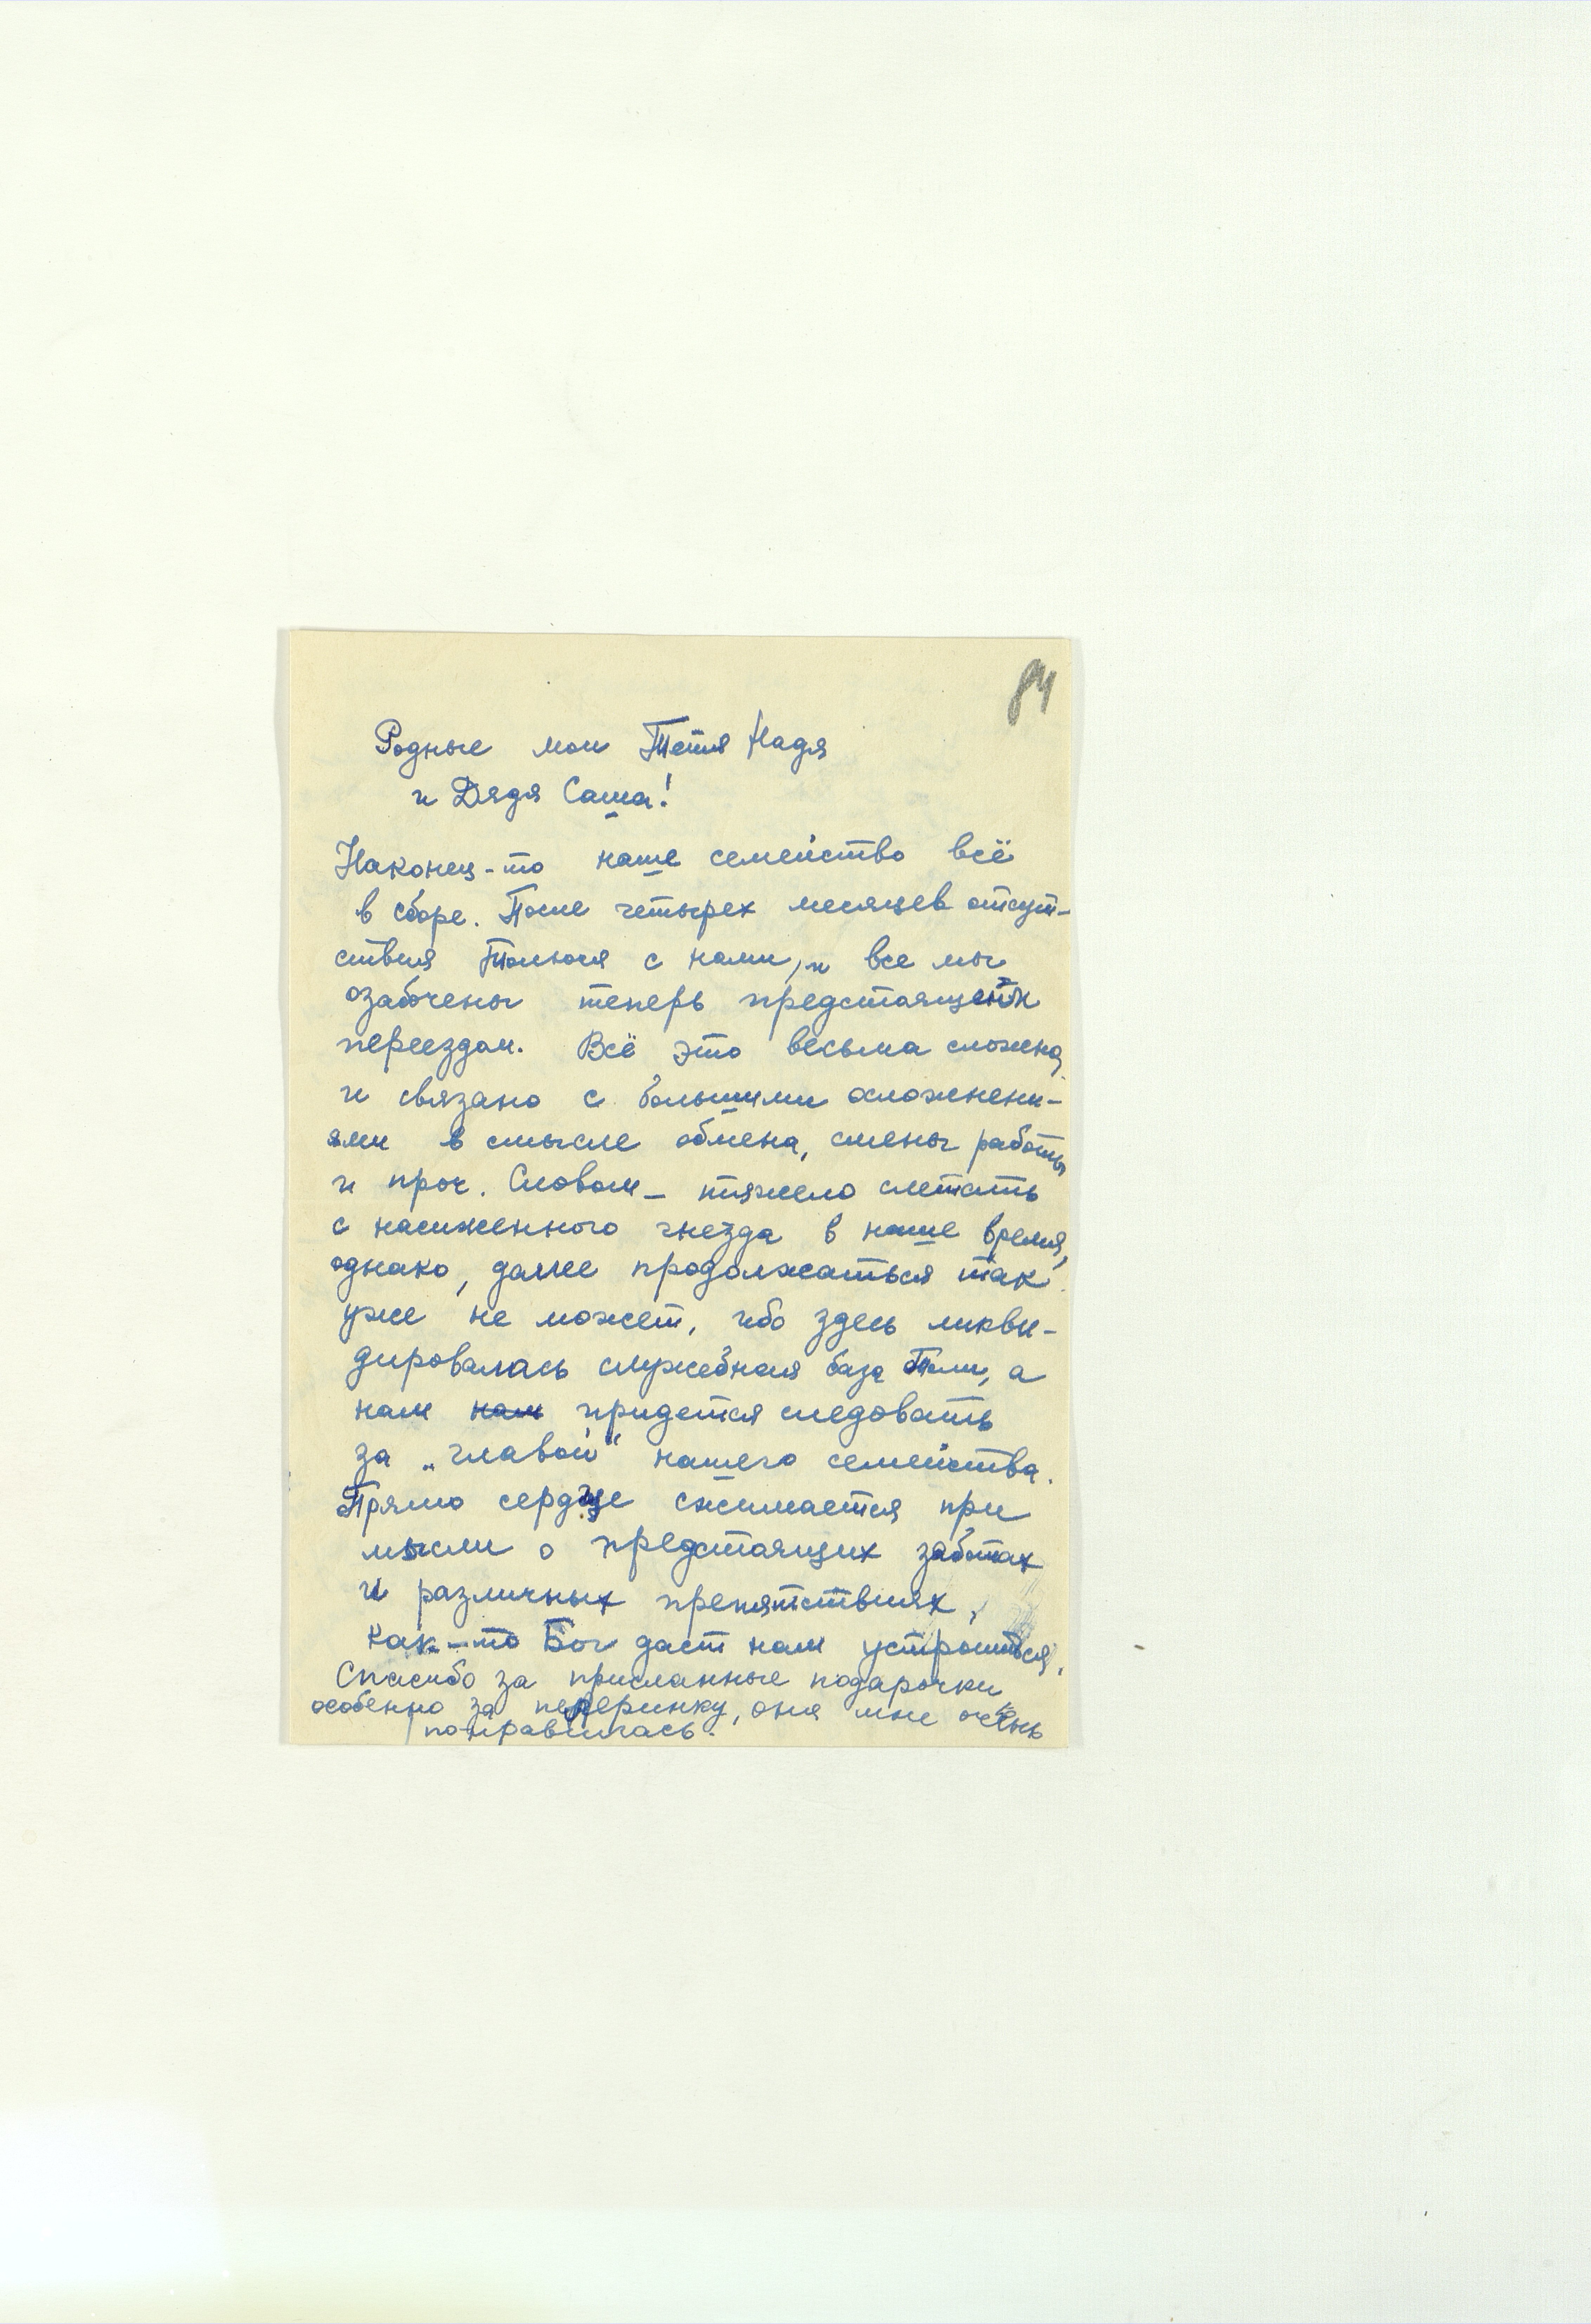 84
Родные мои Тетя Надя
и Дядя Саша!
Наконец-то наше семейство всё
в сборе. После четырех месяцев отсут-
ствия с нами, и все мы
озабочены теперь предстоящим
переездом. Всё это весьма сложно,
и связано с большими осложнени-
ями в смысле обмена, смены работы
и проч. Словом – тяжело слетать
с насиженного гнезда в наше время,
однако, далее продолжаться так
уже не может, ибо здесь ликви-
дировалась служебная база Толи, а
нам нам придется следовать
за „главой“ нашего семейства.
Прямо сердце сжимается при
мысли о предстоящих заботах
и различных препятствиях,
как-то Бог даст нам устроиться.
Спасибо за присланные подарочки
особенно за пелеринку, она мне очень
понравилась.